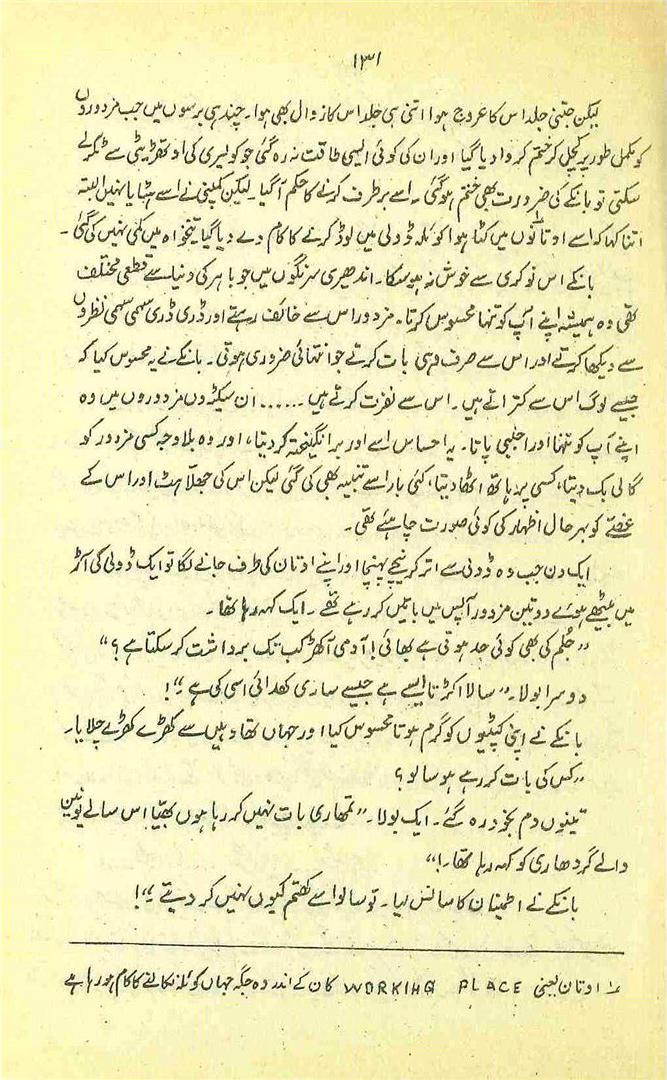 ۱۳۱
لیکن جتنی جلد اس کا عروج ہوا اتنی ہی جلد اس کا زوال بھی ہوا۔ چند ہی برسوں میں جب مزدوروں
کو مکمل طور پر کچل کر ختم کر وا دیا گیا اور ان کی کوئی ایسی طاقت نہ رہ گئی جو کولیری کی اوتھریٹی سے ٹکر لے
سکتی تو بانکے کی ضرورت بھی ختم ہو گئی۔ اسے برطرف کرنے کا حکم آ گیا۔ لیکن کمپنی نے اسے ہٹایا نہیں البتہ
اتنا کہا کہ اسے اوتانوں میں کٹا ہوا کوئلہ ڈولی میں لوڈ کرنے کا کام دے دیا گیا تنخواہ میں کمی نہیں کی گئی۔
بانکے اس نوکری سے خوش نہ ہو سکا۔ اندھیری سرنگوں میں جو باہر کی دنیا سے قطعی مختلف
تھی وہ ہمیشہ اپنے آپ کو تنہا محسوس کرتا۔ مزدور اس سے خائف رہتے اور ڈری ڈری سہمی سہمی نظروں
سے دیکھا کرتے اور اس سے صرف وہی بات کرتے جو انتہائی ضروری ہوتی۔ بانکے نے یہ محسوس کیا کہ
جیسے لوگ اس سے کتراتے ہیں۔ اس سے نفرت کرتے ہیں ...... ان سیکڑوں مزدوروں میں وہ
اپنے آپ کو تنہا اور اجنبی پاتا۔ یہ احساس اسے اور برانگیختہ کر دیتا، اور وہ بلا وجہ کسی مزدور کو
گالی بک دیتا، کسی پر ہاتھ اٹھا دیتا، کئی بار اسے تنبیہ بھی کی گئی لیکن اس کی جھلّاہٹ اور اس کے
غصّے کو بہر حال اظہار کی کوئی صورت چاہئے تھی۔
ایک دن جب وہ ڈولی سے اتر کر نیچے پہنچا اور اپنے اوتان کی طرف جانے لگا تو ایک ڈولی کی آڑ
میں بیٹھے ہوئے دو تین مزدور آپس میں باتیں کر رہے تھے۔ ایک کہہ رہا تھا۔
"جُلم کی بھی کوئی حد ہوتی ہے بھائی! آدمی آکھر کب تک برداشت کر سکتا ہے؟"
دوسرا بولا۔ "سالا اکڑتا ایسے ہے جیسے ساری کھدائی اسی کی ہے"!
بانکے نے اپنی کنپٹیوں کو گرم ہوتا محسوس کیا اور جہاں تھا وہیں سے کھڑے کھڑے چلایا۔
"کس کی بات کر رہے ہو سالو؟
تینوں دم بخود رہ گئے۔ ایک بولا۔ "تمھاری بات نہیں کر رہا ہوں بھیّا! اس سالے یونین
والے گردھاری کو کہہ رہا تھا۔!"
بانکے نے اطمینان کا سانس لیا۔ تو سالو اسے کھتم کیوں نہیں کر دیتے"!
۱؎ اوتان یعنی WORKING PLACE کان کے اندر وہ جگہ جہاں کوئلہ نکالنے کا کام ہو رہا ہے